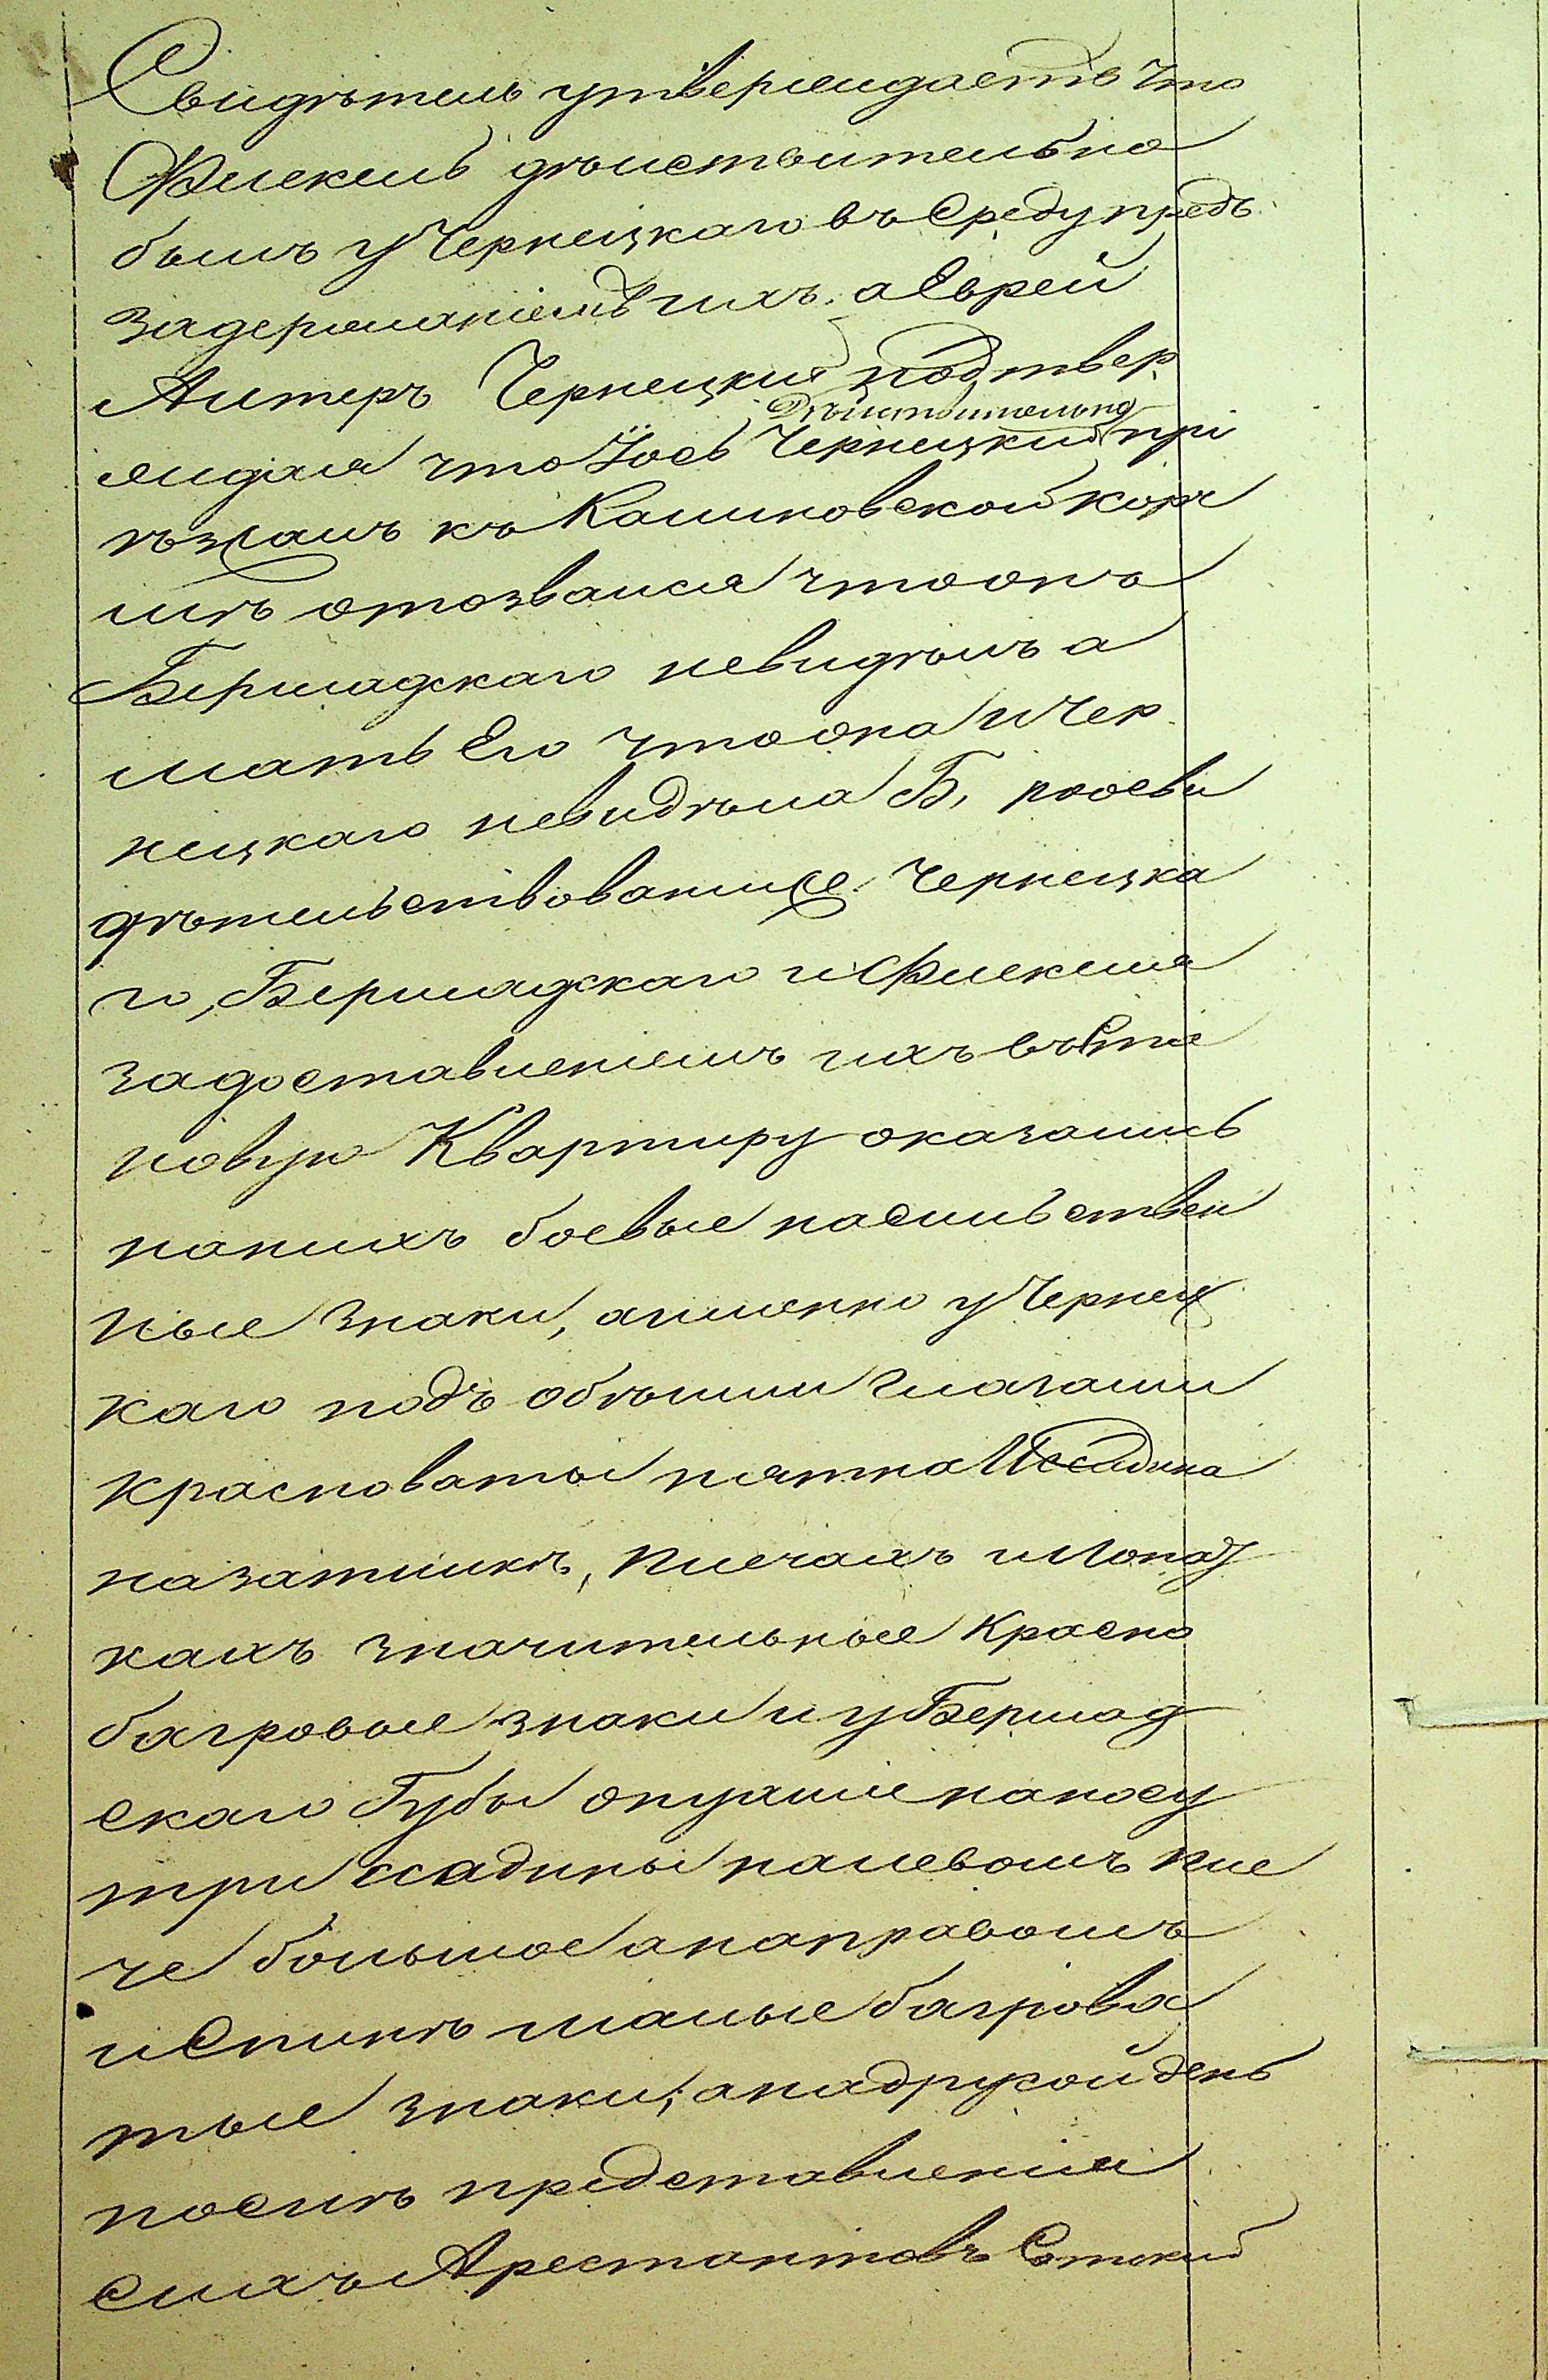 Свидѣтель утверждаетъ что
Флекель дѣйствительно
былъ у Чернецкаго въ Среду предъ
задержаніемъ ихъ, а Еврей
Литеръ Чернецкій подтвер
дѣйствительно
ждая что Іось Чернецкій прі
ѣзжалъ къ Калиновской корч
мѣ отозвался что онъ
Бершадскаго невидѣлъ а
мать Его что она и Чер
нецкаго невидѣла Б, поосви
дѣтельствованіи же Чернецка
го, Бершадскаго и Флекеля
задоставленіемъ ихъ въ Ста
новую Квартиру оказались
на нихъ боевые насильствен
ные знаки, а именно у Чернец
каго подъ обѣими глазами
красноватые пятна И ссадина
на затылкѣ, плечахъ и Лопат
кахъ значительные Красно
багровые знаки и у Бершад
скаго Губы опухшіе на носу
три ссадины на левомъ пле
че большое а на правомъ
и Спинѣ малые багрова
тые знаки; а на другой день
послѣ представленія
сихъ Арестантовъ Сотскій